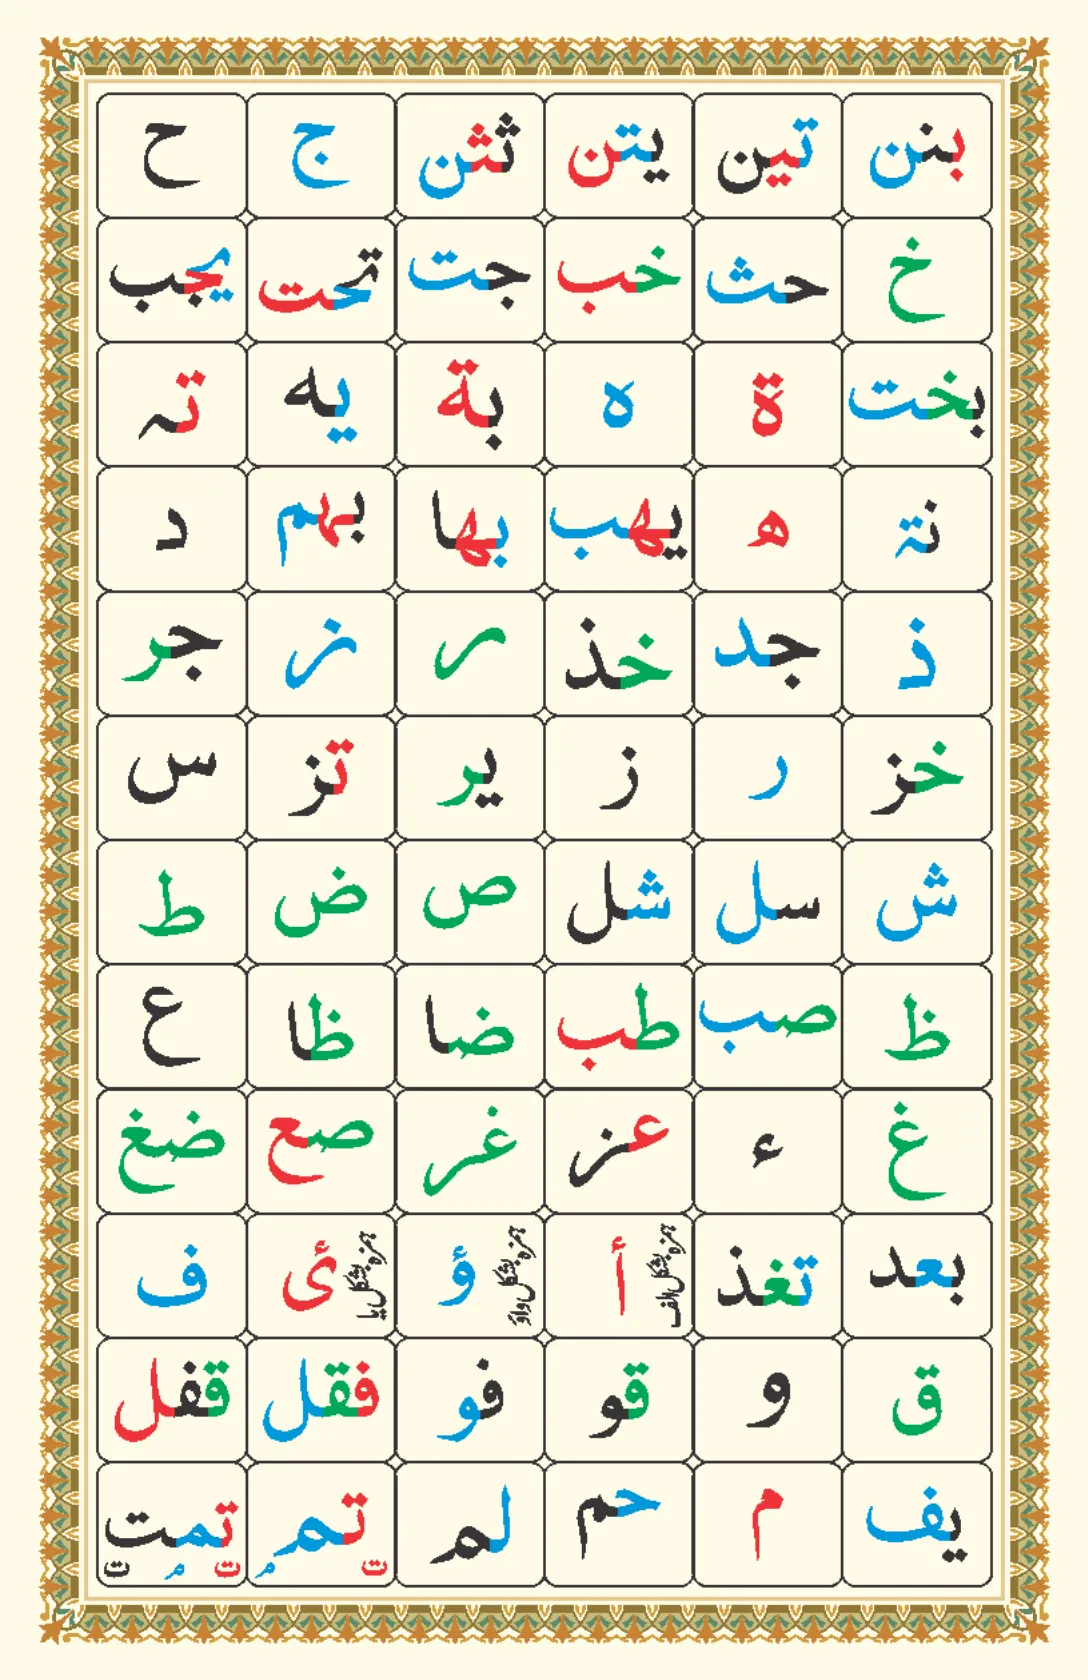 بنن تين يتن ثثن ج ح
خ حث خب جت تحت يجب
بخت ة ه بة يه ته
نة ه يهب بها بهم د
ذ جد خذ ر ز جر
خز ر ز ير تز س
ش سل شل ص ض ط
ظ صب طب ضا ظا ع
غ ء عز غر صع ضغ
بعد تغذ أ ہمزہ بشکل الف ؤ ہمزہ بشکل واؤ ئ ہمزہ بشکل یا ف
ق و قو فو فقل قفل
يف م حم لم تم تمت
ت م ت م ت